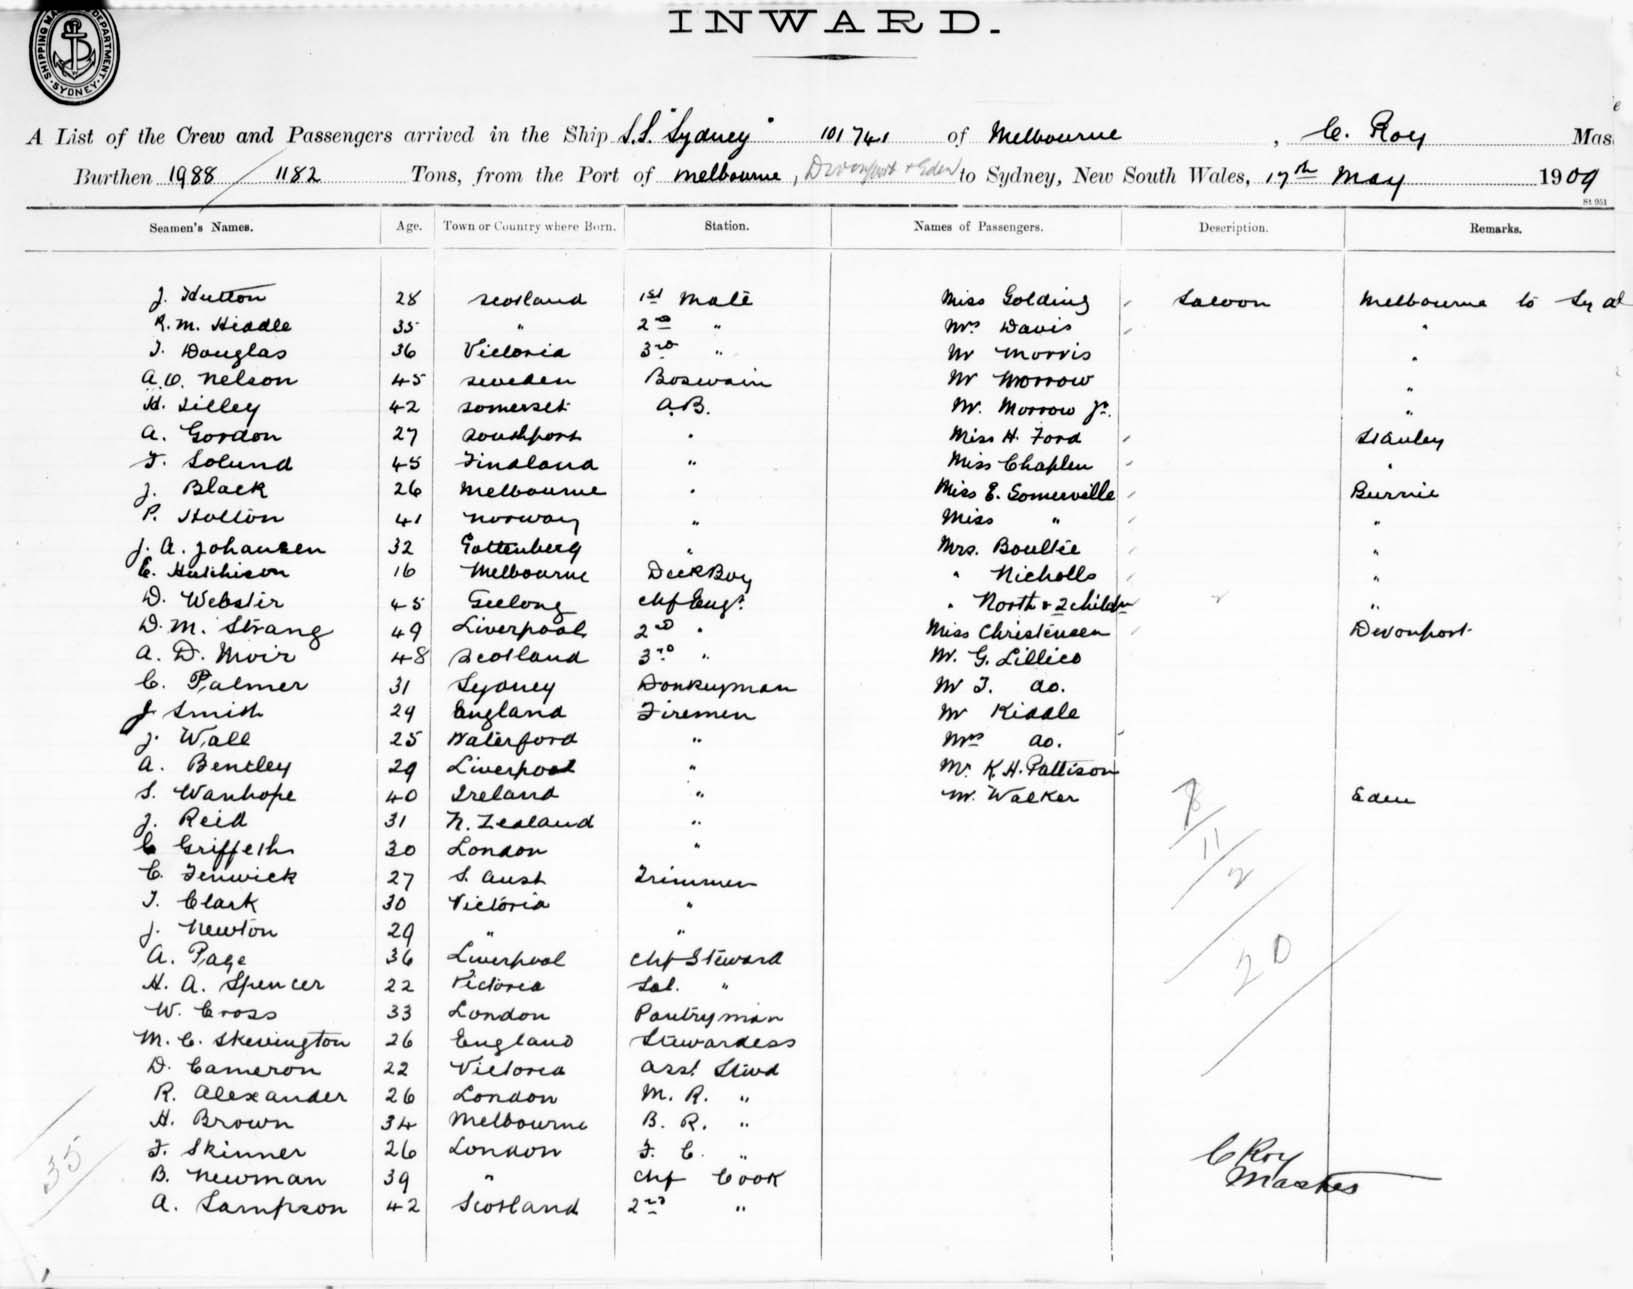 SHIPPING MASTER'S DEPARTMENT SYDNEY
INWARD.
A List of the Crew and Passengers arrived in the Ship S.S. "Sydney" 101741 of Melbourne, C. Roy Mas
Burthen 1988 / 1182 Tons, from the Port of Melbourne, Devonport + Eden to Sydney, New South Wales, 17th May 1909
St 951
Seamen's Names. Age. Town or Country where Born. Station. Names of Passengers. Description. Remarks.
J. Hutton 28 Scotland 1st Mate Miss Golding Saloon Melbourne to Syd
R. M. Hiddle 35 " 2nd " Mrs Davis "
T. Douglas 36 Victoria 3rd " Mr Morris "
A. O. Nelson 45 Sweden Boswain Mr Morrow "
H. Tilley 42 Somerset A.B. Mr. Morrow Jr. "
A. Gordon 27 Southport " Miss H. Ford Stanley
F. Solund 45 Findland " Miss Chaplin "
J. Black 26 Melbourne " Miss E. Somerville Burnie
P. Holton 41 Norway " Miss " "
J. A. Johansen 32 Gottenberg " Mrs. Boultie "
E. Hutchison 16 Melbourne Deck Boy " Nicholls "
D. Webster 45 Geelong Chf Engr. " North & 2 childn "
D. M. Strang 49 Liverpool 2nd " Miss Christensen Devonport
A. D. Moir 48 Scotland 3rd " Mr. G. Lillico
C. Palmer 31 Sydney Donkeyman Mr T. do.
J Smith 29 England Firemen Mr Kiddle
J. Wall 25 Waterford " Mrs do.
A. Bentley 29 Liverpool " Mr. K. H. Pattison
S. Wanhope 40 Ireland " Mr. Walker Eden
J. Reid 31 N. Zealand "
C Griffeths 30 London "
C. Fenwick 27 S. Aust Trimmer
T. Clark 30 Victoria "
J. Newton 29 " "
A. Page 36 Liverpool Chf Steward
H. A. Spencer 22 Victoria Sal. "
W. Cross 33 London Pantryman
M. C. Skevington 26 England Stewardess
D. Cameron 22 Victoria Asst Stwd
R. Alexander 26 London M. R. "
H. Brown 34 Melbourne B. R. "
F. Skinner 26 London F. C. "
B. Newman 39 " Chf Cook
A. Sampson 42 Scotland 2nd "
11
2
20
35
C Roy
Master